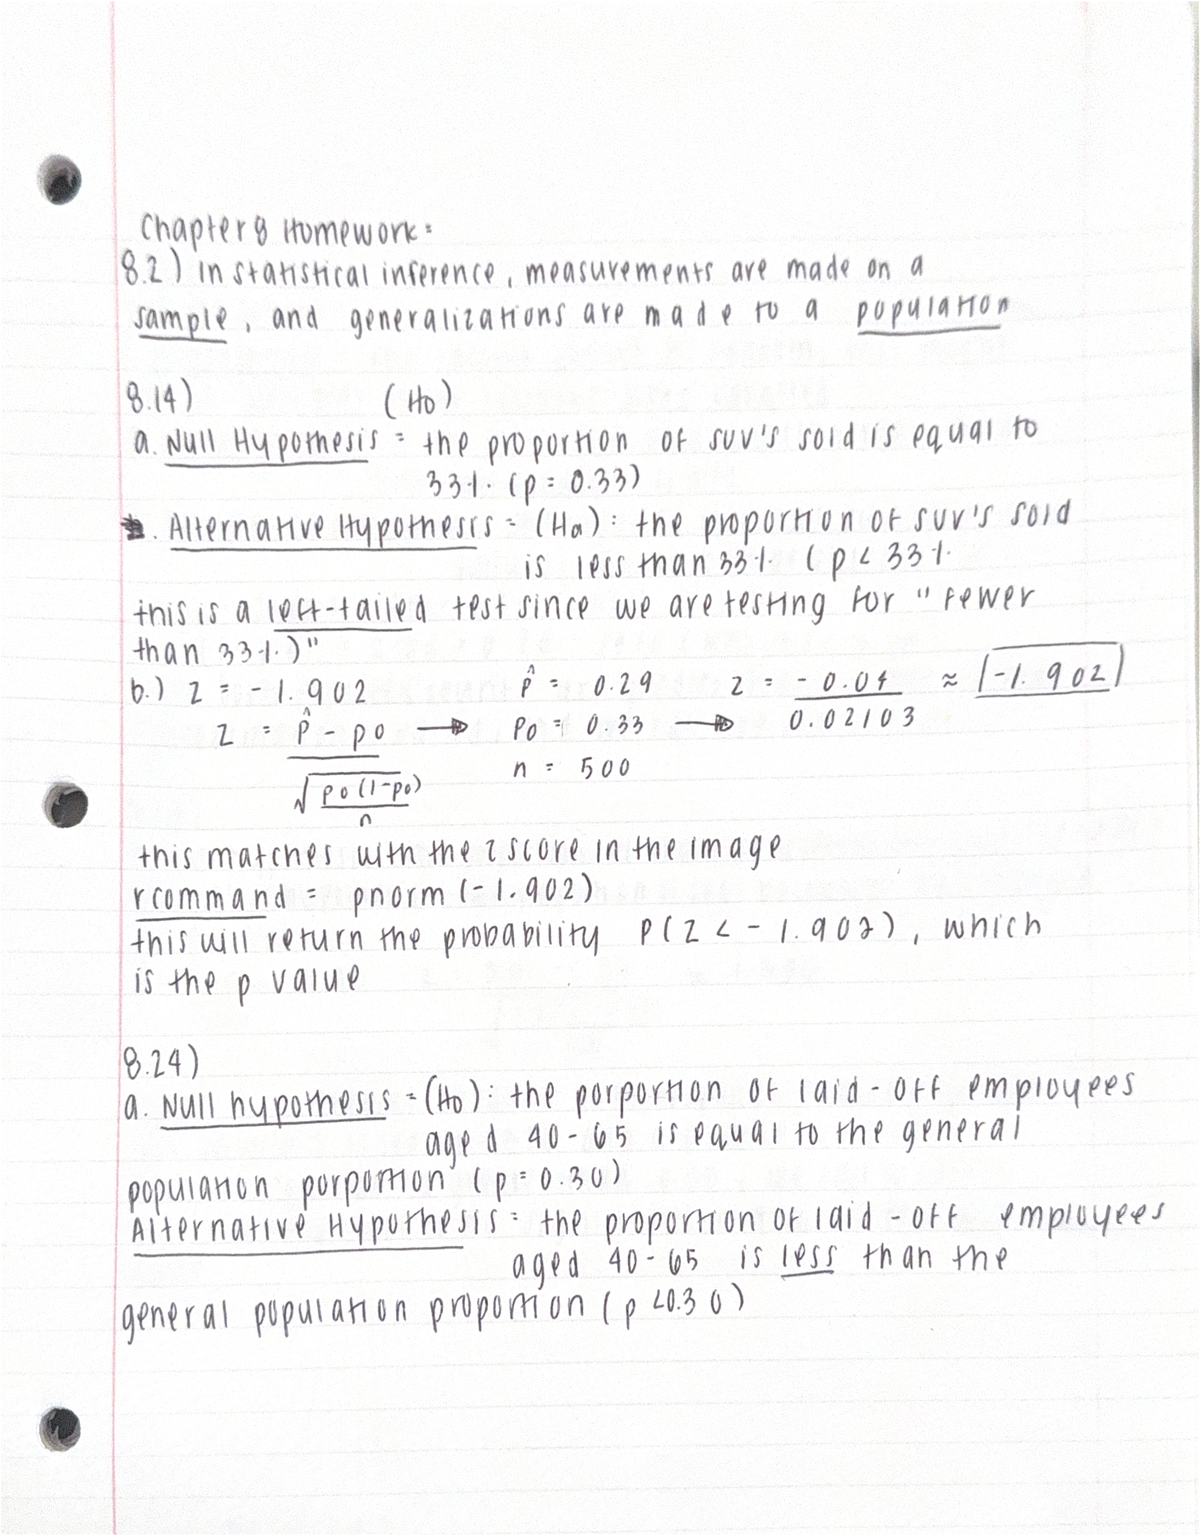 Chapter 8 Homework:
8.2) In statistical inference, measurements are made on a
sample, and generalizations are made to a population
8.14) (H0)
a. Null Hypothesis = the proportion of SUV's sold is equal to
33%. (p = 0.33)
. Alternative Hypothesis = (Ha): the proportion of SUV's sold
is less than 33% (p < 33%
this is a left-tailed test since we are testing for "fewer
than 33%.)"
b.) z = -1.902 p̂ = 0.29 z = -0.04 / 0.02103 ≈ |-1.902|
z = p̂ - p0 / √(p0(1-p0) / n) → p0 = 0.33 →
n = 500
this matches with the z score in the image
rcommand = pnorm (-1.902)
this will return the probability P(Z < -1.902), which
is the p value
8.24)
a. Null hypothesis = (H0): the porportion of laid-off employees
aged 40-65 is equal to the general
population porportion (p = 0.30)
Alternative Hypothesis = the proportion of laid-off employees
aged 40-65 is less than the
general population proportion (p <0.30)